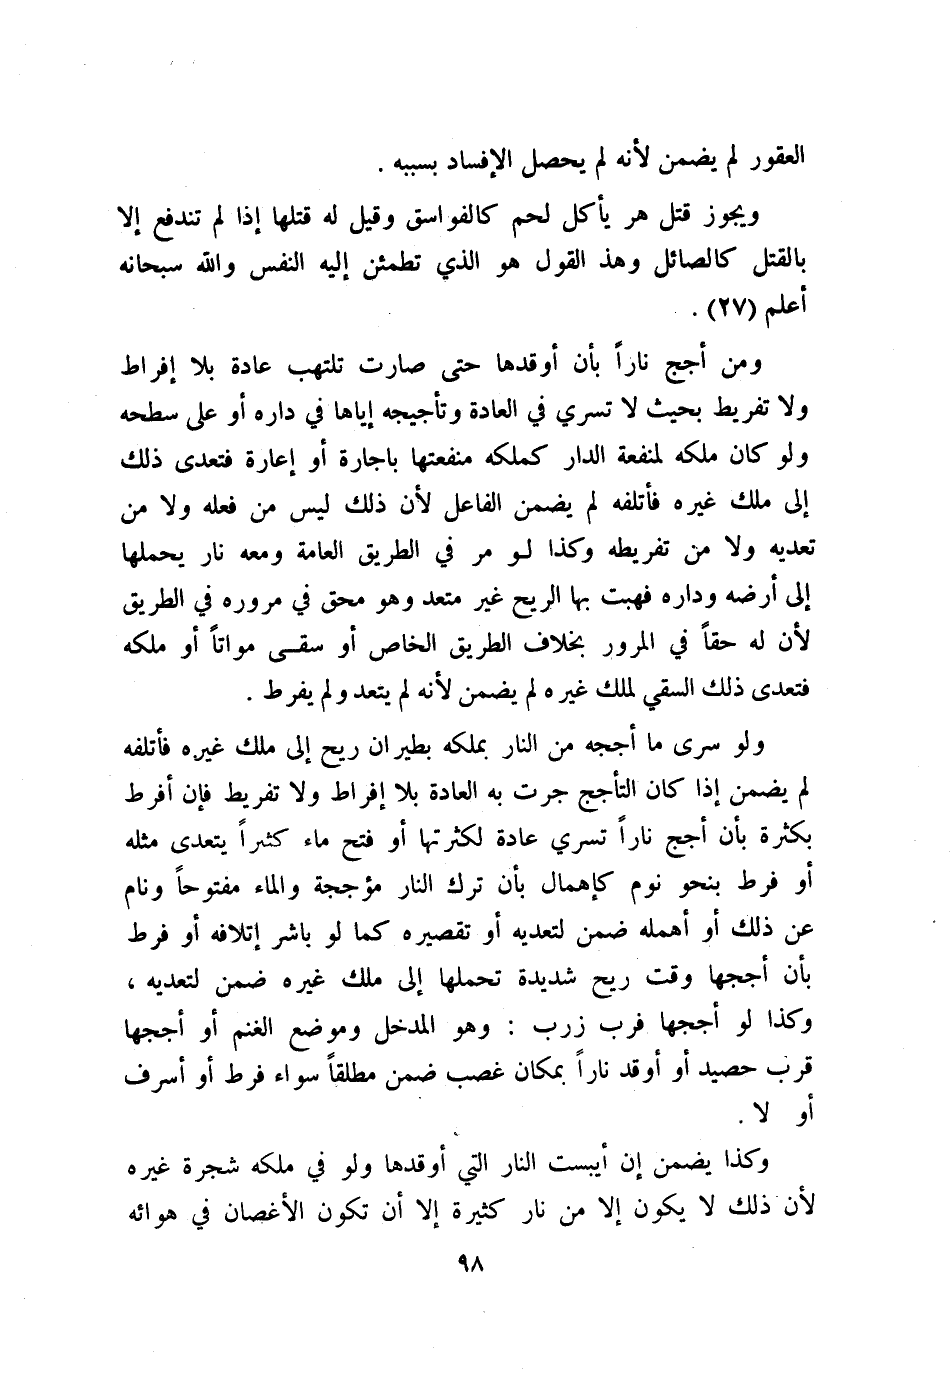 العقور لم يضمن لأنه لم يحصل الإفساد بسببه .
ويجوز قتل هر يأكل لحم كالفواسق وقيل له قتلها إذا لم تندفع إلا
بالقتل كالصائل وهذ القول هو الذي تطمئن إليه النفس والله سبحانه
أعلم (٢٧) .
ومن أجج ناراً بأن أوقدها حتى صارت تلتهب عادة بلا إفراط
ولا تفريط بحيث لا تسري في العادة وتأجيجه إياها في داره أو على سطحه
ولو كان ملكه لمنفعة الدار كملكه منفعتها باجارة أو إعارة فتعدى ذلك
إلى ملك غيره فأتلفه لم يضمن الفاعل لأن ذلك ليس من فعله ولا من
تعديه ولا من تفريطه وكذا لو مر في الطريق العامة ومعه نار يحملها
إلى أرضه وداره فهبت بها الريح غير متعد وهو محق في مروره في الطريق
لأن له حقاً في المرور بخلاف الطريق الخاص أو سقى مواتاً أو ملكه
فتعدى ذلك السقي لملك غيره لم يضمن لأنه لم يتعد ولم يفرط .
ولو سرى ما أججه من النار بملكه بطيران ريح إلى ملك غيره فأتلفه
لم يضمن إذا كان التأجج جرت به العادة بلا إفراط ولا تفريط فإن أفرط
بكثرة بأن أجج ناراً تسري عادة لكثرتها أو فتح ماء كثيراً يتعدى مثله
أو فرط بنحو نوم كإهمال بأن ترك النار مؤججة والماء مفتوحاً ونام
عن ذلك أو أهمله ضمن لتعديه أو تقصيره كما لو باشر إتلافه أو فرط
بأن أججها وقت ريح شديدة تحملها إلى ملك غيره ضمن لتعديه ،
وكذا لو أججها فرب زرب : وهو المدخل وموضع الغنم أو أججها
قرب حصيد أو أوقد ناراً بمكان غصب ضمن مطلقاً سواء فرط أو أسرف
أو لا .
وكذا يضمن إن أيبست النار التي أوقدها ولو في ملكه شجرة غيره
لأن ذلك لا يكون إلا من نار كثيرة إلا أن تكون الأغصان في هوائه
٩٨